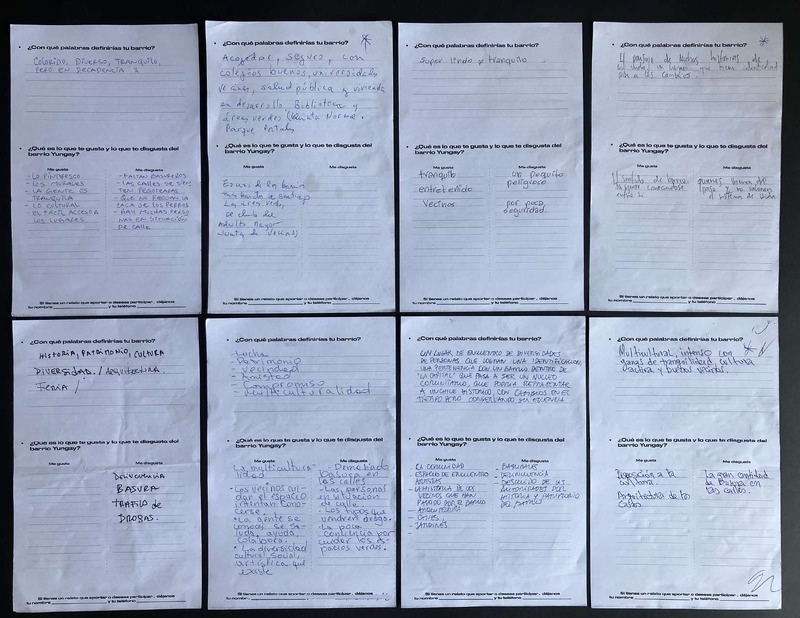 ¿Con qué palabras definirías tu barrio?
COLORIDO, DIVERSO, TRANQUILO,
PERO EN DECADENCIA
¿Qué es lo que te gusta y lo que te disgusta del
barrio Yungay?
Me gusta
- LO PINTORESCO
- LOS MURALES
- LA GENTE ES
TRANQUILA
- LO CULTURAL
- EL FÁCIL ACCESO A
LOS LUGARES
Me disgusta
- FALTAN BASUREROS
- LAS CALLES SE SIEN
TEN
- QUE NO RECOJAN LA
CACA DE LOS PERROS
- HAY MUCHAS PERSO
NAS EN SITUACIÓN
DE CALLE
Si tienes un relato que aportar o deseas participar, déjanos
tu nombre y tu teléfono
¿Con qué palabras definirías tu barrio?
Acogedor, seguro, con
colegios buenos, universidades
cercanas, salud pública y vivienda
en desarrollo, Biblioteca y
áreas verdes (Quinta Normal.
Parque Portales
¿Qué es lo que te gusta y lo que te disgusta del
barrio Yungay?
Me gusta
Las áreas verdes,
el club del
Adulto Mayor
(Junta de Vecinos)
Me disgusta
Si tienes un relato que aportar o deseas participar, déjanos
tu nombre y tu teléfono
¿Con qué palabras definirías tu barrio?
super lindo y tranquilo
¿Qué es lo que te gusta y lo que te disgusta del
barrio Yungay?
Me gusta
tranquilo
entretenido
Vecinos
Me disgusta
un poquito
peligroso
por poca
seguridad.
Si tienes un relato que aportar o deseas participar, déjanos
tu nombre y tu teléfono
¿Con qué palabras definirías tu barrio?
El paisaje de muchas historias de
identidad
a los cambios.
¿Qué es lo que te gusta y lo que te disgusta del
barrio Yungay?
Me gusta
El sentido de barrio
la gente
entre sí
Me disgusta
quienes
y no valoran
el sistema de vida
Si tienes un relato que aportar o deseas participar, déjanos
tu nombre y tu teléfono
¿Con qué palabras definirías tu barrio?
HISTORIA, PATRIMONIO, CULTURA
DIVERSIDAD. / Arquitectura
FERIA /
¿Qué es lo que te gusta y lo que te disgusta del
barrio Yungay?
Me gusta
Me disgusta
DELINCUENCIA
BASURA
TRÁFICO DE
DROGAS.
Si tienes un relato que aportar o deseas participar, déjanos
tu nombre y tu teléfono
¿Con qué palabras definirías tu barrio?
- Lucha
- Patrimonio
- vecindad
- Amistad
- Compromiso
- Multiculturalidad
¿Qué es lo que te gusta y lo que te disgusta del
barrio Yungay?
Me gusta
La multicultura
lidad
• Los vecinos cui
dan el espacio
intentan cono-
cerse.
• La gente se
conoce, se sa-
luda, ayuda,
colabora.
• La diversidad
cultural, social,
artística que
existe
Me disgusta
- Demasiada
basura en
las calles
- Las personas
en situación
de calle
- Los tipos que
venden droga.
- La poca
conciencia por
cuidar los es
pacios verdes.
Si tienes un relato que aportar o deseas participar, déjanos
tu nombre y tu teléfono
¿Con qué palabras definirías tu barrio?
UN LUGAR DE ENCUENTRO DE DIVERSIDADES
DE PERSONAS QUE LOGRAN UNA IDENTIFICACIÓN,
UNA PERTENENCIA CON UN BARRIO DENTRO DE
"LA CAPITAL" QUE PASA A SER UN NÚCLEO
COMUNITARIO, QUE PODRÍA REPRESENTAR
A UN CHILE HISTÓRICO, CON CAMBIOS EN EL
TIEMPO PERO CONSERVANDO SU ESCENCIA
¿Qué es lo que te gusta y lo que te disgusta del
barrio Yungay?
Me gusta
- LA COMUNIDAD
- ESPACIO DE ENCUENTRO
- ARTISTAS
- LA HISTORIA DE LOS
VECINOS QUE HAN
PASADO POR EL BARRIO
- ARQUITECTURA
- CITÉS
- JARDINES
Me disgusta
- BASURALES
- DELINCUENCIA
- DESCUIDO DE LAS
AUTORIDADES POR
HISTORIA Y PATRIMONIO
DEL BARRIO
Si tienes un relato que aportar o deseas participar, déjanos
tu nombre y tu teléfono
¿Con qué palabras definirías tu barrio?
Multicultural, intenso con
ganas de tranquilidad, cultura
activa y buenos vecinos.
¿Qué es lo que te gusta y lo que te disgusta del
barrio Yungay?
Me gusta
Disposición a la
cultura.
Arquitectura de las
casas
Me disgusta
La gran cantidad
de Basura en
las calles.
Si tienes un relato que aportar o deseas participar, déjanos
tu nombre y tu teléfono